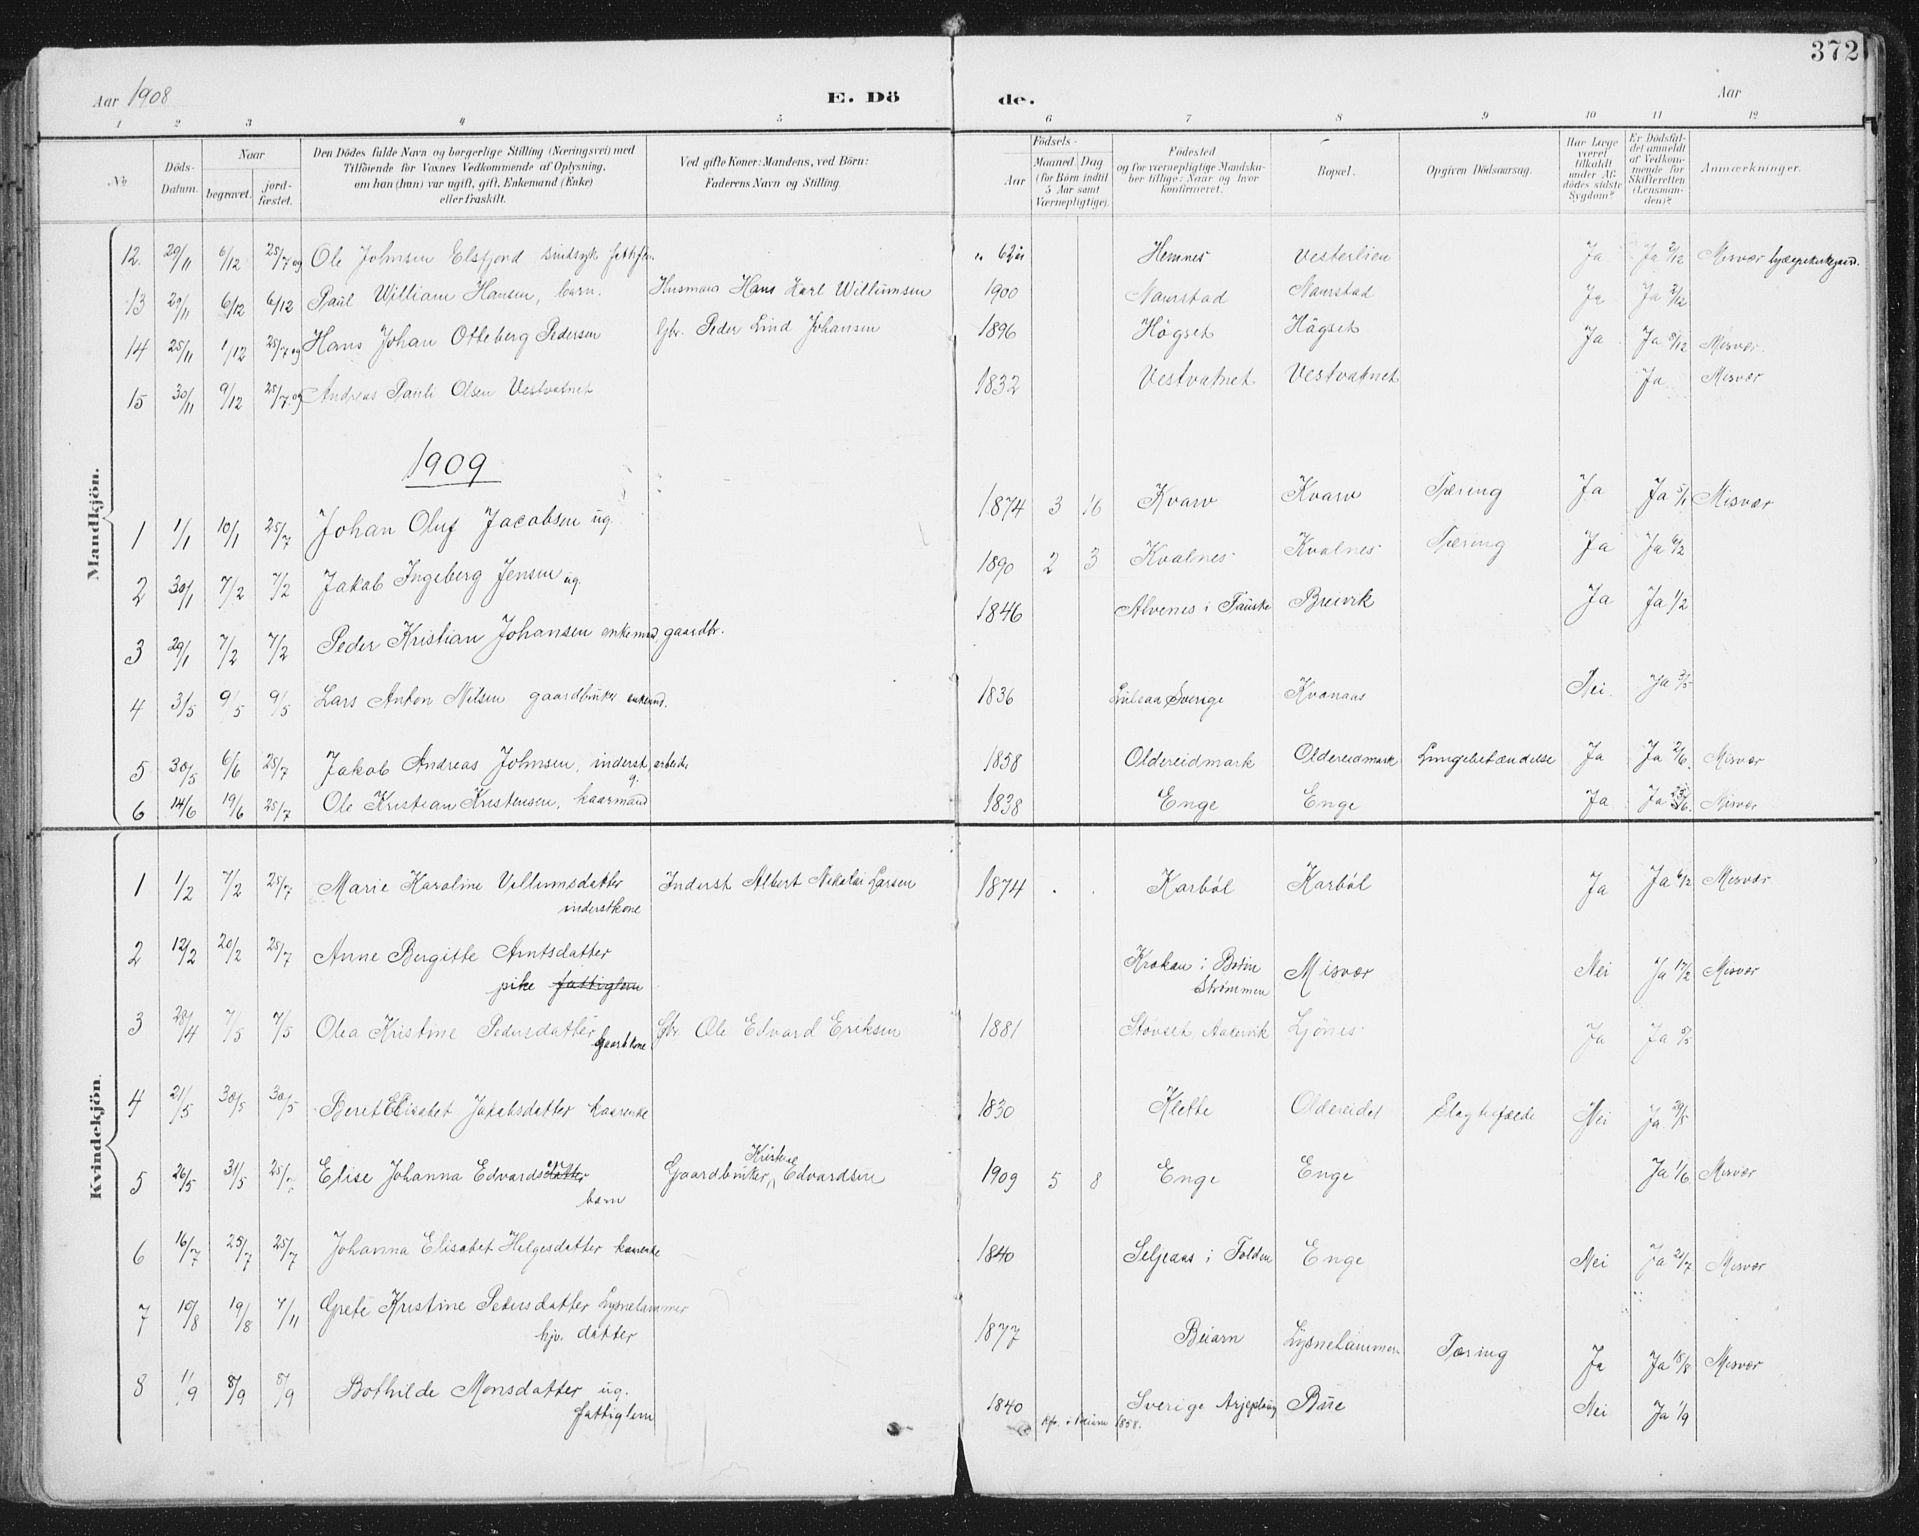 372
Aar 1908
E. Dö
de.
Aar
1 2 3 4 5 6 7 8 9 10 11 12
No
Döds-Datum.
Naar begravet. jord-fæstet.
Den Dödes fulde Navn og borgerlige Stilling (Næringsvei) med
Tilföiende for Voxnes Vedkommende af Oplysning,
om han (hun) var ugift, gift, Enkemand (Enke)
eller fraskilt.
Ved gifte Koner: Mandens, ved Börn:
Faderens Navn og Stilling.
Födsels-
Aar
Maaned Dag
(for Börn indtil
5 Aar samt
Værnepligtige).
Födested
og for værnepligtige Mandska-
ber tillige: Naar og hvor
konfirmeret.
Bopæl.
Opgiven Dödsaarsag.
Har Læge
været
tilkaldt
under Af-
dödes sidste
Sygdom?
Er Dödsfal-
det anmeldt
af Vedkom-
mende for
Skifteretten
(Lensman-
den)?
Anmærkninger.
Mandkjön.
12. 29/11 6/12 25/7 09 Ole Johnsen Elsfjord sindsyk 62 år Hemnes Vesterlien Ja Ja 2/12 Misvær
13 29/11 6/12 6/12 Paul William Hansen, barn. Husmans Hans Karl Willumsen 1900 Naurstad Naurstad Ja Ja 2/12
14 25/11 1/12 25/7 09 Hans Johan Otteberg Pedersen Gbr. Peder Lind Johansen 1896 Högset Högset Ja Ja 8/12 Misvær.
15 30/11 9/12 25/7 09 Andreas Pauli Olsen Vestvatnet 1832 Vestvatnet Vestvatnet Ja Misvær
1909
1 1/1 10/1 25/7 Johan Oluf Jacobsen ug. 1874 3 16 Kvarv Kvarv Tæring Ja Ja 5/1 Misvær
2 30/1 7/2 7/2 Jakob Ingeberg Jensen ug. 1890 2 3 Kvalnes Kvalnes Tæring Ja Ja 6/2
3 29/1 7/2 7/2 Peder Kristian Johansen enkemand, gaardbr. 1846 Alvenes i Fauske Breivik Ja Ja 1/2
4 3/5 9/5 9/5 Lars Anton Nilsen gaardbruker enkemd. 1836 Luleaa Sverige Kvanaas Nei. Ja 3/5
5 30/5 6/6 25/7 Jakob Andreas Johnsen, inderst, arbeide 1858 Oldereidmark Oldereidmark Lungebetændelse Ja Ja 2/6. Misvær
6 14/6 19/6 25/7 Ole Kristian Kristensen, kaarmand 1838 Enge Enge Ja Ja Misvær
Kvindekjön.
1 1/2 7/2 25/7 Marie Karoline Villumsdatter Inderst Albert Nikolai Larsen 1874 Karböl Karböl Ja Ja 6/2 Misvær
inderstkone
2 12/2 20/2 25/7 Anne Bergitte Arntsdatter Krokan i Bodin Misvær Nei Ja 17/2 Misvær
pike fattiglem Strømmen
3 28/4 7/5 7/5 Olea Kristine Pedersdatter Gbr Ole Edvard Eriksen 1881 Støvset, Aakervik Ljönes Ja Ja
Gaardkone
4 21/5 30/5 30/5 Beret Elisabet Jakobsdatter kaarenke 1830 Klette Oldereidet Slagtilfælde Nei Ja 29/5
5 26/5 31/5 25/7 Elise Johanna Edvardsdatter Gaardbruker Edvardsen 1909 5 8 Enge Enge Ja 1/6 Misvær
barn
6 16/7 25/7 25/7 Johanna Elisabet Helgesdatter kaarenke 1840 Seljeaas i Folden Enge Nei Ja 21/7 Misvær
7 10/8 19/8 7/11 Grete Kristine Petersdatter Lysnelammer 1877 Beiarn Lysnelammer Tæring Ja Ja 18/8 Misvær
hjv. datter
8 1/9 8/9 8/9 Bothilde Monsdatter ug. 1840 Sverige Arjeploug Bue Nei Ja 1/9
fattiglem Kfr. i Beiarn 1858.